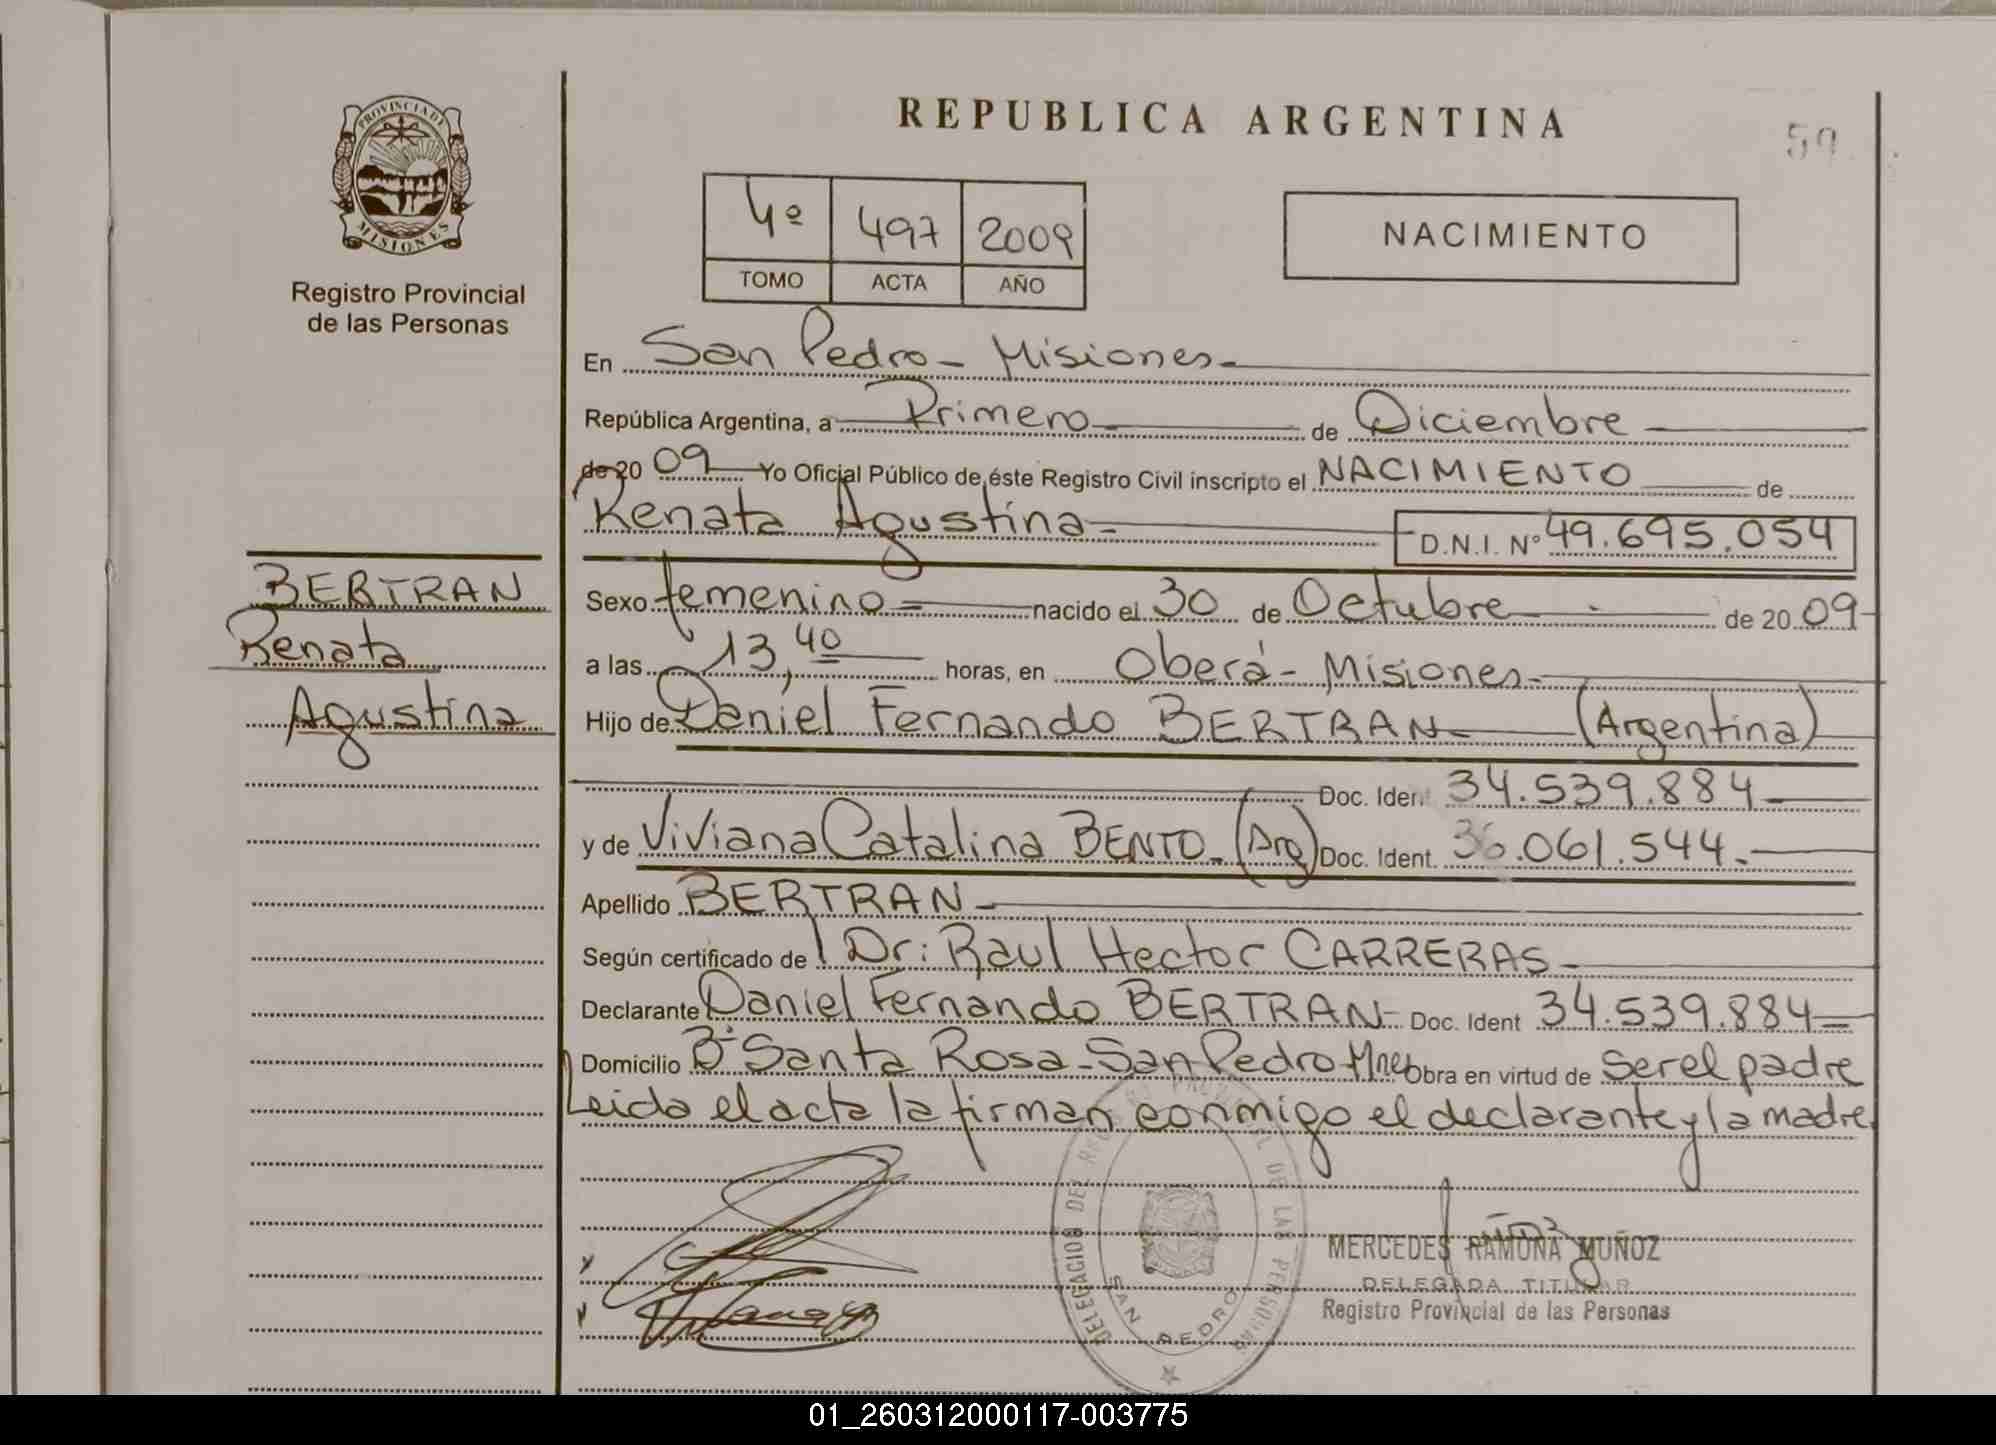 REPUBLICA ARGENTINA
59
PROVINCIA DE
MISIONES
Registro Provincial
de las Personas
4º 497 2009
TOMO ACTA AÑO
NACIMIENTO
En San Pedro - Misiones
República Argentina, a Primero de Diciembre
de 20 09 Yo Oficial Público de éste Registro Civil inscripto el NACIMIENTO de
Renata Agustina D.N.I. Nº 49.695.054
BERTRAN
Renata
Agustina
Sexo femenino nacido el 30 de Octubre de 20 09
a las 13,40 horas, en Oberá - Misiones
Hijo de Daniel Fernando BERTRAN (Argentina)
Doc. Ident 34.539.884
y de Viviana Catalina BENTO. (Arg) Doc. Ident. 36.061.544.
Apellido BERTRAN
Según certificado de Dr: Raul Hector CARRERAS
Declarante Daniel Fernando BERTRAN Doc. Ident 34.539.884
Domicilio Bº Santa Rosa - San Pedro - Mnes Obra en virtud de Ser el padre
Leida el acta la firman conmigo el declarante y la madre.
DELEGACION DEL REGISTRO PROVINCIAL DE LAS PERSONAS
SAN PEDRO
MERCEDES RAMONA MUÑOZ
DELEGADA TITULAR
Registro Provincial de las Personas
01_260312000117-003775